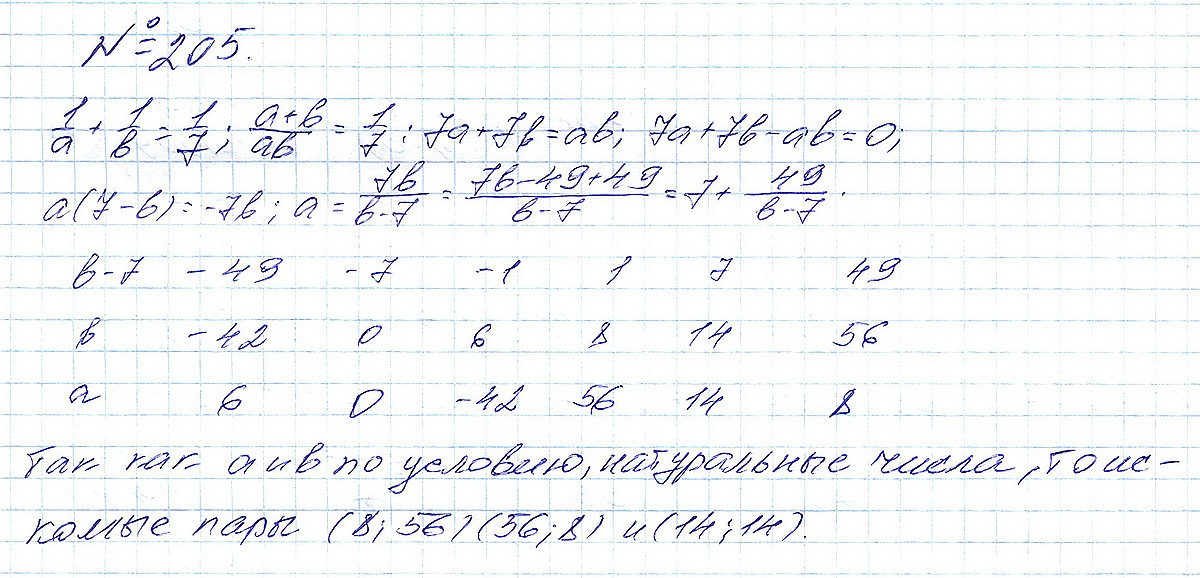 № 205.
1/a + 1/b = 1/7; (a+b)/ab = 1/7; 7a+7b=ab; 7a+7b-ab=0;
a(7-b)=-7b; a = 7b/(b-7) = (7b-49+49)/(b-7) = 7 + 49/(b-7).
b-7 -49 -7 -1 1 7 49
b -42 0 6 8 14 56
a 6 0 -42 56 14 8
Так как a и b по условию, натуральные числа, то ис-
комые пары (8; 56) (56; 8) и (14; 14).